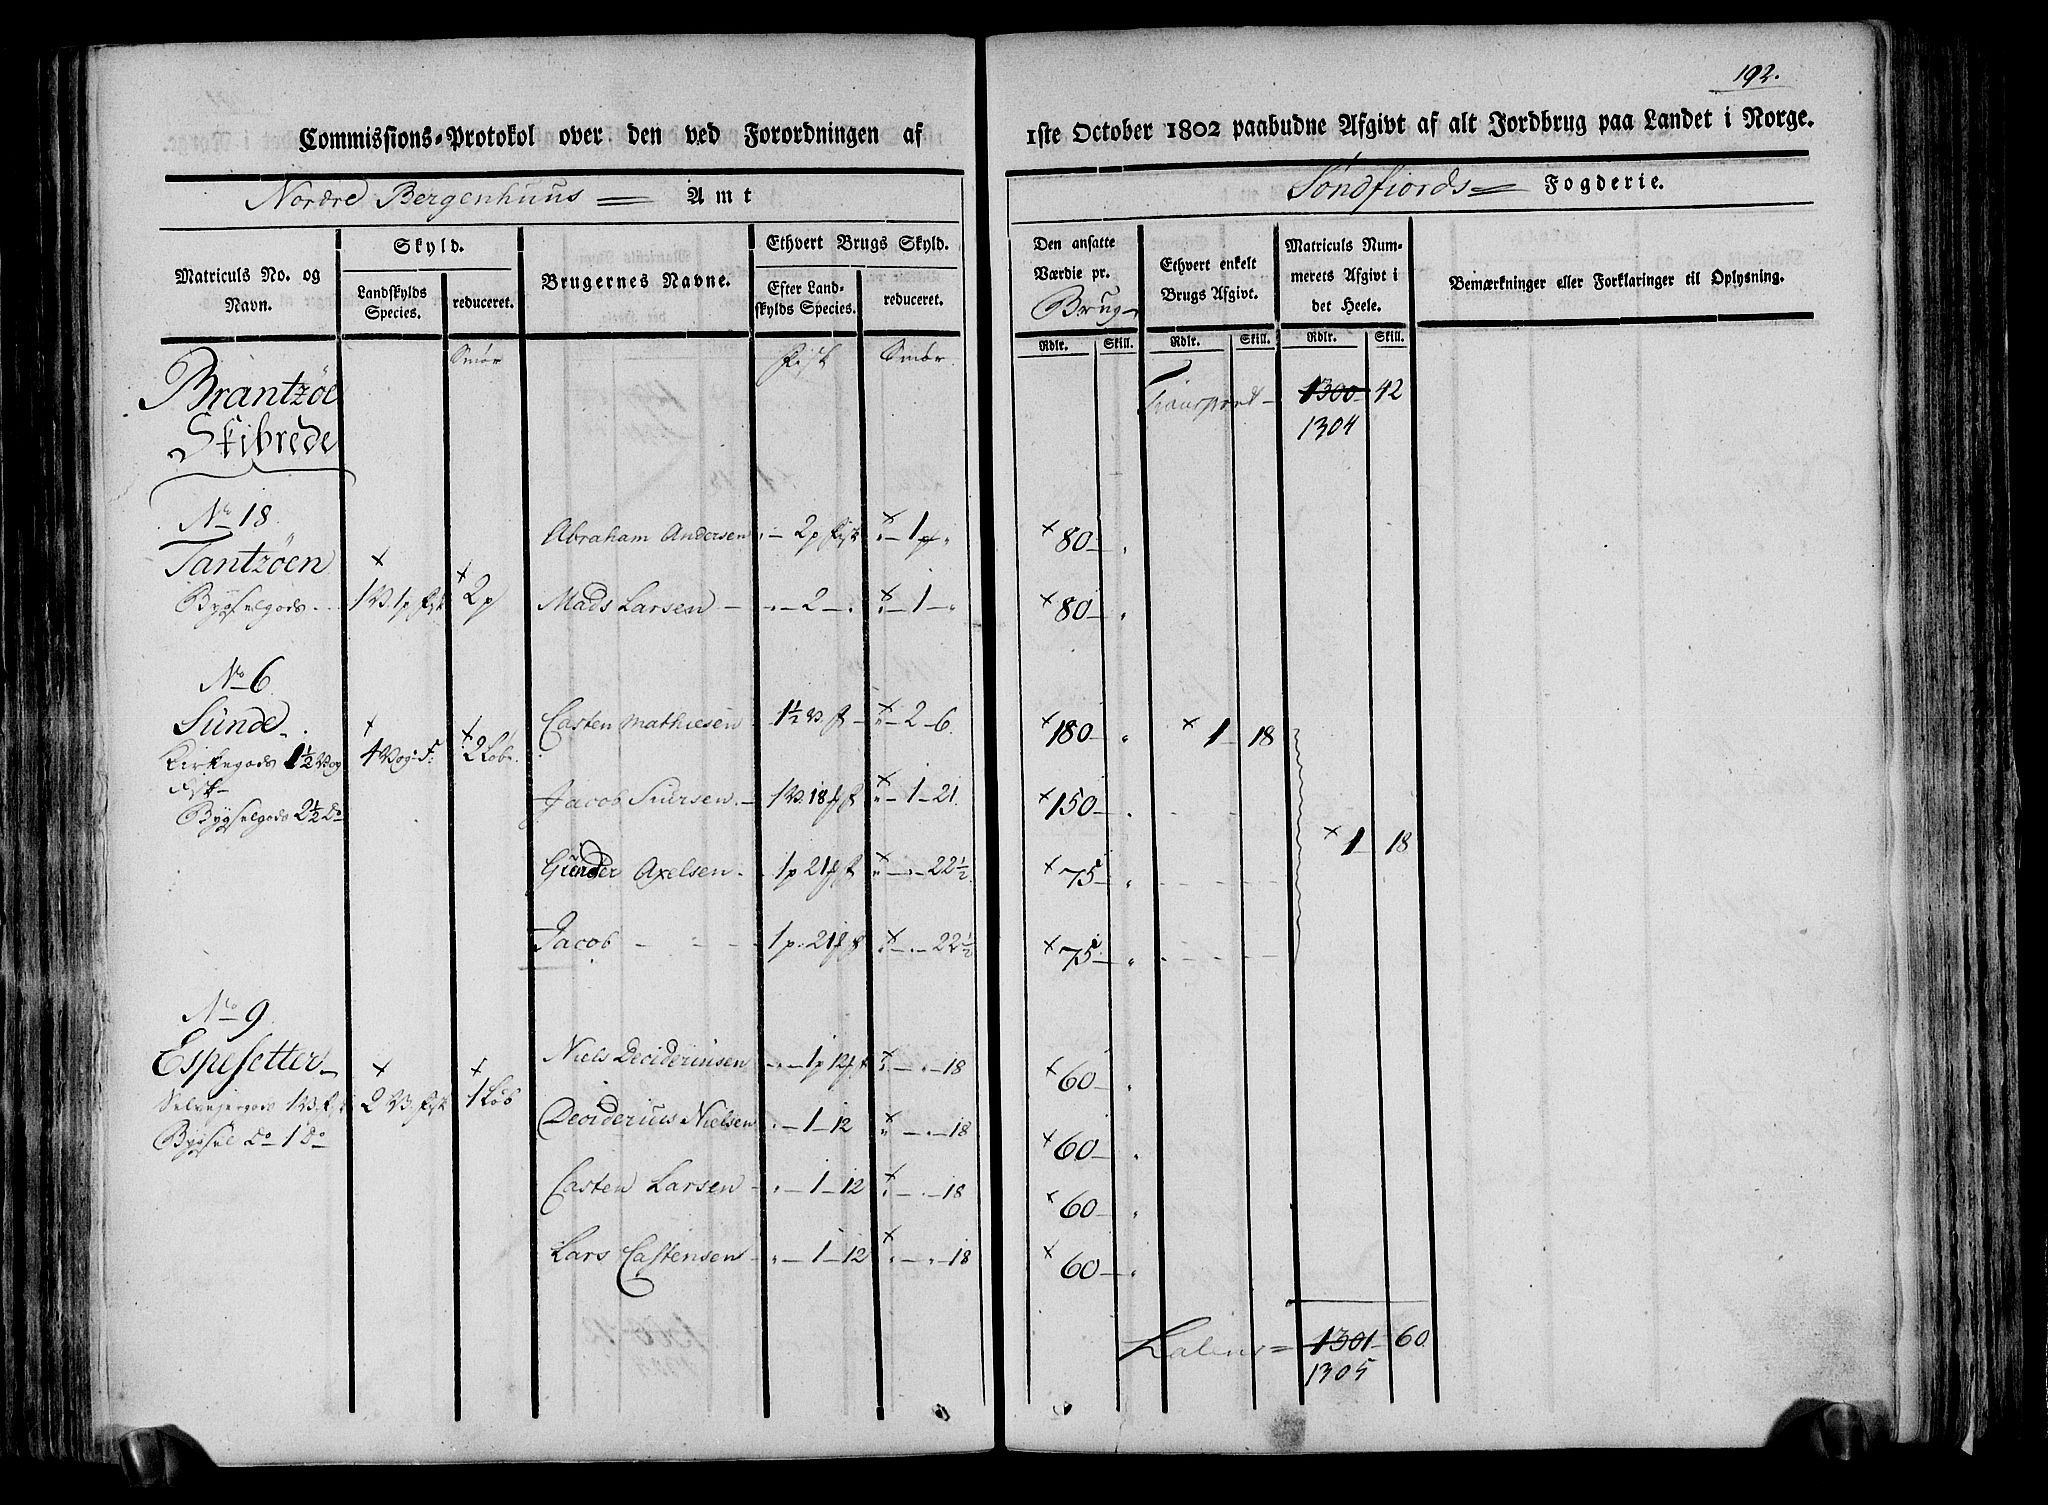 192.
Commissions-Protokol over den ved Forordningen af 1ste October 1802 paabudne Afgivt af alt Jordbrug paa Landet i Norge.
Nordre Bergenhuus Amt
Søndfiords Fogderie.
Matriculs No. og Navn.
Skyld.
Landskylds Species.
reduceret.
Brugernes Navne.
Ethvert Brugs Skyld.
Efter Landskylds Species.
reduceret.
Den ansatte Værdie pr. Brug
Ethvert enkelt Brugs Afgivt.
Matriculs Nummerets Afgivt i det Heele.
Bemærkninger eller Forklaringer til Oplysning.
Rdlr. Skill. Rdlr. Skill. Rdlr. Skill.
Smör Fisk Smör
Brantzöe Skibrede
Transport 1300 42
1304
No 18
Tantzöen
Bygselgods 1 V. 1 p fisk 2 p
Abraham Andersen 2 p fisk 1 p 80
Mads Larsen 2 1 80
No 6
Sunde
Kirkegods 1½ Vog fisk 4 Vog f. 2 Løb
Bygselgods 2½ do
Casten Mathiesen 1½ V. f 2 6 180 1 18
Jacob Siursen 1 V. 18 f 1 21 150
1 18
Gunder Axelsen 1 p 21 22½ 75
Jacob 1 p 21 22½ 75
No 9
Espesetter
Selvejergods 1 V. f 2 V. fisk 1 Løb
Bygsel do 1 do
Niels Deciderinsen 1 p 12 18 60
Deciderius Nielsen 1 12 18 60
Casten Larsen 1 12 18 60
Lars Castensen 1 12 18 60
Lateris 1301 60
1305